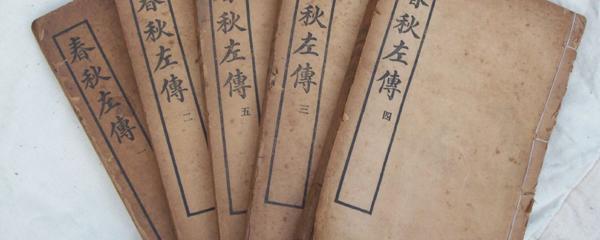 春秋左傳 一
春秋左傳 二
春秋左傳 五
秋左傳 三
春秋左傳 四